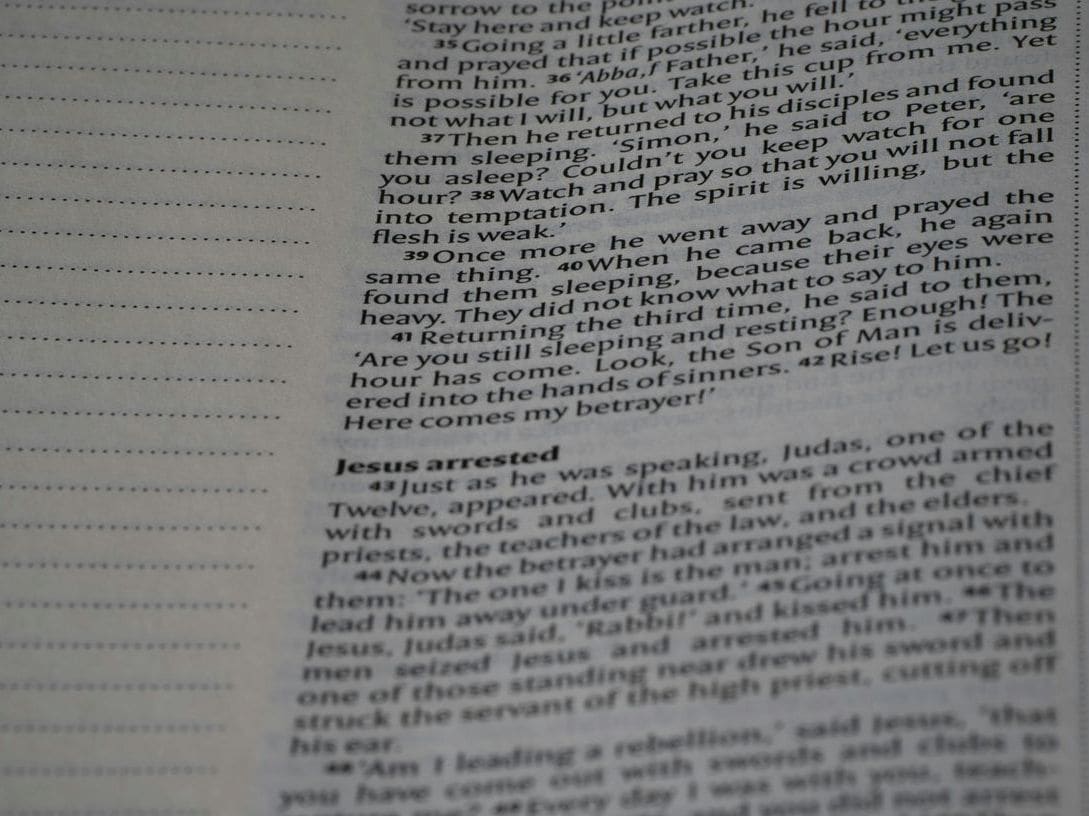 sorrow to the point
'Stay here and keep watch.'
35 Going a little farther, he fell to the
and prayed that if possible the hour might pass
from him. 36 'Abba,f Father,' he said, 'everything
is possible for you. Take this cup from me. Yet
not what I will, but what you will.'
37 Then he returned to his disciples and found
them sleeping. 'Simon,' he said to Peter, 'are
you asleep? Couldn't you keep watch for one
hour? 38 Watch and pray so that you will not fall
into temptation. The spirit is willing, but the
flesh is weak.'
39 Once more he went away and prayed the
same thing. 40 When he came back, he again
found them sleeping, because their eyes were
heavy. They did not know what to say to him.
41 Returning the third time, he said to them,
'Are you still sleeping and resting? Enough! The
hour has come. Look, the Son of Man is deliv-
ered into the hands of sinners. 42 Rise! Let us go!
Here comes my betrayer!'
Jesus arrested
43 Just as he was speaking, Judas, one of the
Twelve, appeared. With him was a crowd armed
with swords and clubs, sent from the chief
priests, the teachers of the law, and the elders.
44 Now the betrayer had arranged a signal with
them: 'The one I kiss is the man; arrest him and
lead him away under guard.' 45 Going at once to
Jesus, Judas said, 'Rabbi!' and kissed him. 46 The
men seized Jesus and arrested him. 47 Then
one of those standing near drew his sword and
struck the servant of the high priest, cutting off
his ear.
48 'Am I leading a rebellion,' said Jesus, 'that
you have come out with swords and clubs to
me? 49 Every day I was with you, teach-
and you did not arrest